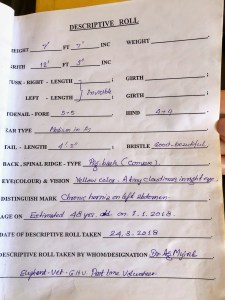 DESCRIPTIVE ROLL
HEIGHT 7' FT 7" INC WEIGHT
GIRTH 12' FT 3" INC
TUSK - RIGHT - LENGTH ; GIRTH ;
LEFT - LENGTH Invisible GIRTH ;
TOENAIL - FORE 5-5 HIND 4-4
EAR TYPE Medium in
TAIL - LENGTH 4' 2" BRISTLE Good-beautiful
BACK, SPINAL RIDGE - TYPE Pig back (Convex).
EYE(COLOUR) & VISION Yellow color. A tiny cloudiness in right eye.
DISTINGUISH MARK Chronic hernia on left abdomen
AGE ON Estimated 48 yrs old on 3.1.2018.
DATE OF DESCRIPTIVE ROLL TAKEN 24.3.2018
DESCRIPTIVE ROLL TAKEN BY WHOM/DESIGNATION Dr
Elephant-Vet. Part time Volunteer